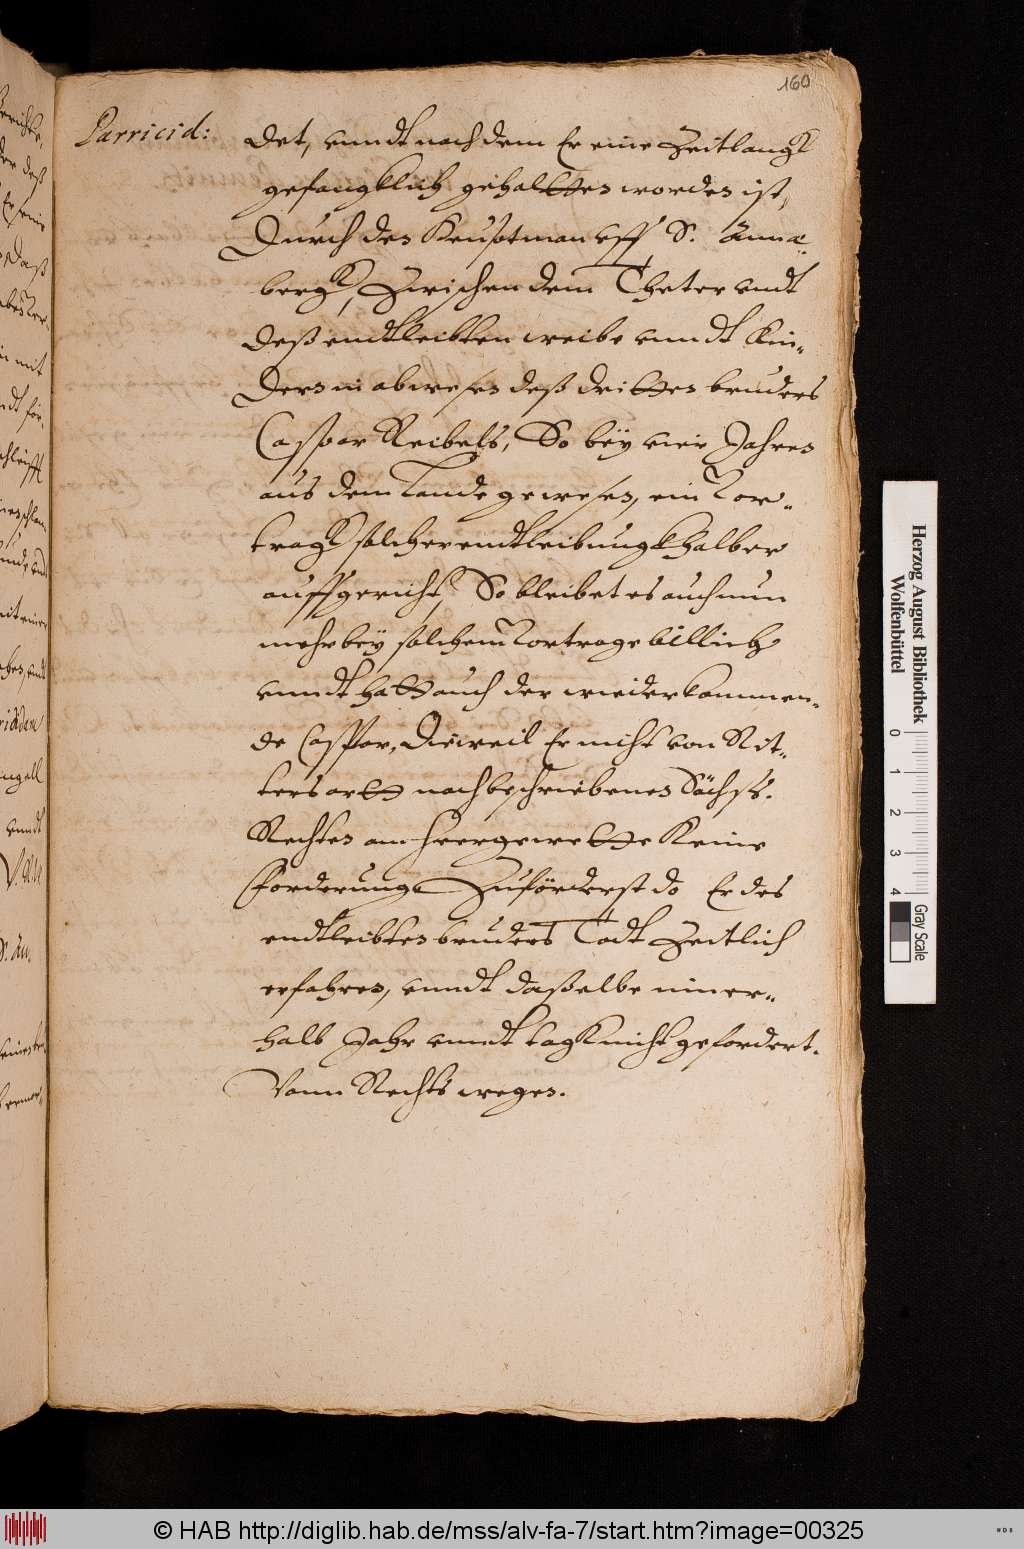 160
Parricid:
det, vnndt nach dem Er eine Zeitlangk
gefangklich gehaltten worden ist,
Durch den Heuptman vff S. Anna-
bergk, Zwischen dem Theter vndt
deß endtleibten weibe vnndt Kin-
dern in abwesen deß dritten bruders
Caspar Reibels, So bey vier Jahren
aus dem Lande gewesen, ein Vor-
tragk solcher endtleibungk halber
auffgericht, So bleibet es auch nun
mehr bey solchem Vortrage billich
vnndt hatt auch der wiederkommen-
de Caspar, Dieweil Er nicht von Rit-
ters artt nach beschriebenen Sächß.
Rechten am Heergewette Keine
Forderunge Zuförderst do Er des
endtleibten bruders Todt Zeitlich
erfahren, vnndt daßelbe inner-
halb Jahr vnndt tagk nicht gefordert.
Vonn Rechts wegen.
Herzog August Bibliothek
Wolfenbüttel
0 1 2 3 4
Gray Scale
© HAB http://diglib.hab.de/mss/alv-fa-7/start.htm?image=00325